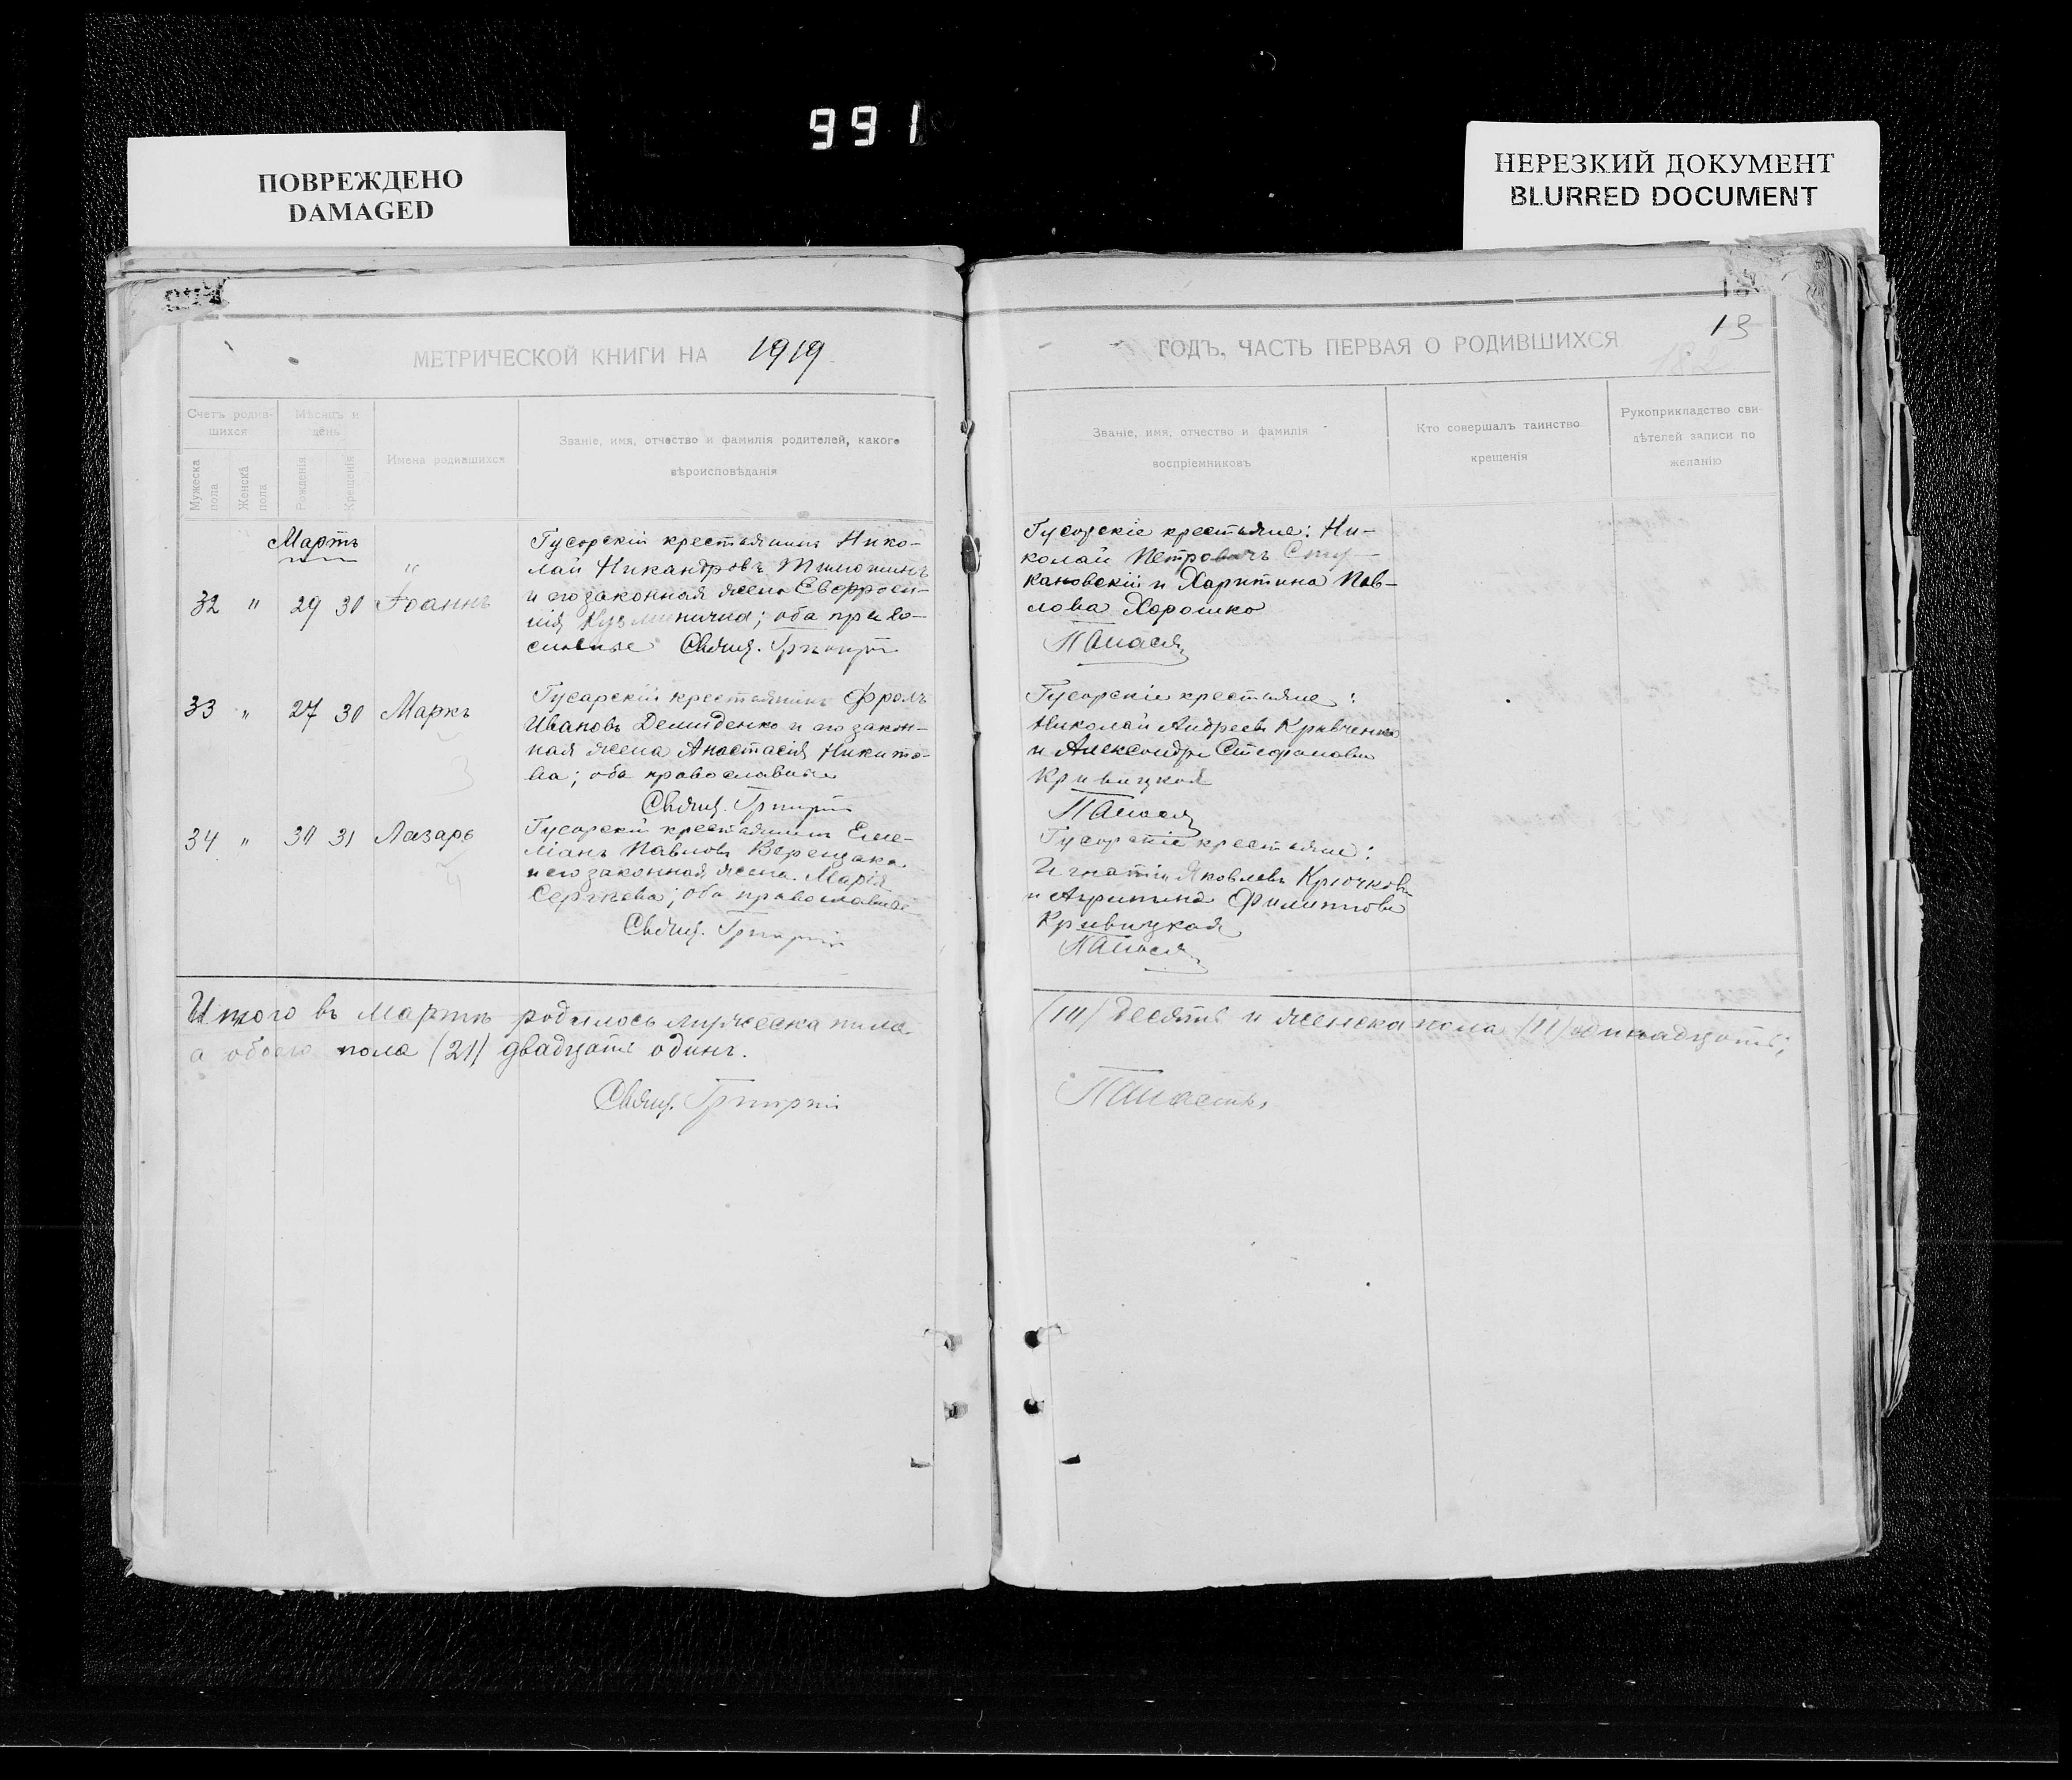 991
ПОВРЕЖДЕНО
DAMAGED
НЕРЕЗКИЙ ДОКУМЕНТ
BLURRED DOCUMENT
МЕТРИЧЕСКОЙ КНИГИ НА 1919
Счетъ родив-
шихся
Мѣсяцъ и
день
Мужеска
пола
Женска
пола
Рожденія
Крещенія
Имена родившихся
Званіе, имя, отчество и фамилія родителей, какого
вѣроисповѣданія
Мартъ
32 " 29 30 Іоаннъ
Гусарскій крестьянинъ Нико-
лай Никандровъ
и его законная жена Евфроси-
нія ; оба право-
славные Свящ. Григорій
33 " 27 30 Маркъ
Гусарскій крестьянинъ Фролъ
Ивановъ Демиденко и его закон-
ная жена Анастасія Никито-
ва; оба православные
Свящ. Григорій
34 " 30 31 Лазарь
Гусарскій крестьянинъ Еме-
ліанъ Павловъ Верещака
и его законная жена Марія
Сергѣева; оба православные
Свящ. Григорій
Итого въ Мартѣ родилось мужеска пола
а обоего пола (21) двадцать одинъ.
Свящ. Григорій
13
182
ГОДЪ, ЧАСТЬ ПЕРВАЯ О РОДИВШИХСЯ
Званіе, имя, отчество и фамилія
воспріемниковъ
Кто совершалъ таинство
крещенія
Рукоприкладство сви-
дѣтелей записи по
желанію
Гусарскіе крестьяне: Ни-
колай Петровичъ
и Харитина Пав-
лова Хорошко
Гусарскіе крестьяне:
Николай Андреевъ Кривченко
и Александра Стефанова
Кривицкая
Гусарскіе крестьяне:
Игнатій Яковлевъ Крючковъ
и Агрипина Филиппова
Кривицкая
(10) десять и женска пола (11) одинадцать;